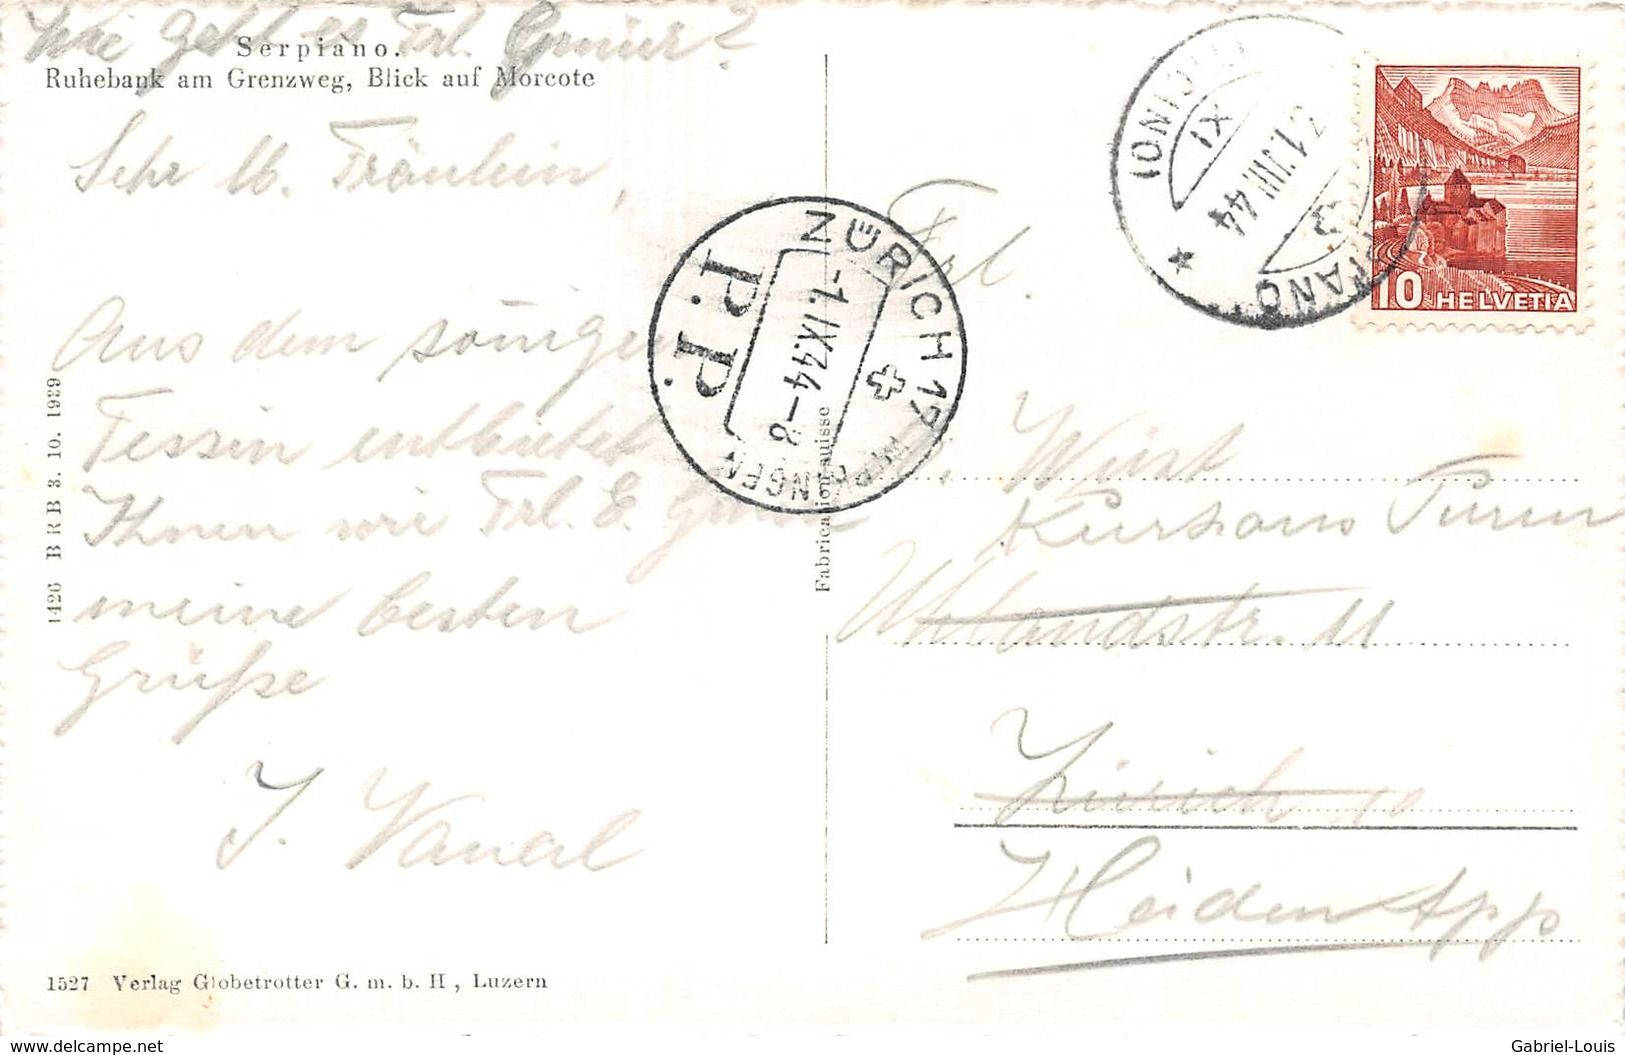 Wie geht es Frl. Gmür?
Serpiano.
Ruhebank am Grenzweg, Blick auf Morcote
Sehr lb. Fräulein,
Aus dem sonigen
Tessin entbietet
Ihnen wie Frl. E.
meine besten
Grüße
J. Vanal
1426 BRB 3. 10. 1939
1527 Verlag Globetrotter G. m. b. H, Luzern
Fabrication suisse
ZÜRICH 19 WIPKINGEN
-1.IX.44-8
P.P.
(TICINO)
XI
31.VIII.44
10 HELVETIA
Frl.
Würt
Kurhaus Turm
Uhlandstr. 11
Zürich 10
Heiden App
delcampe.net
Gabriel-Louis